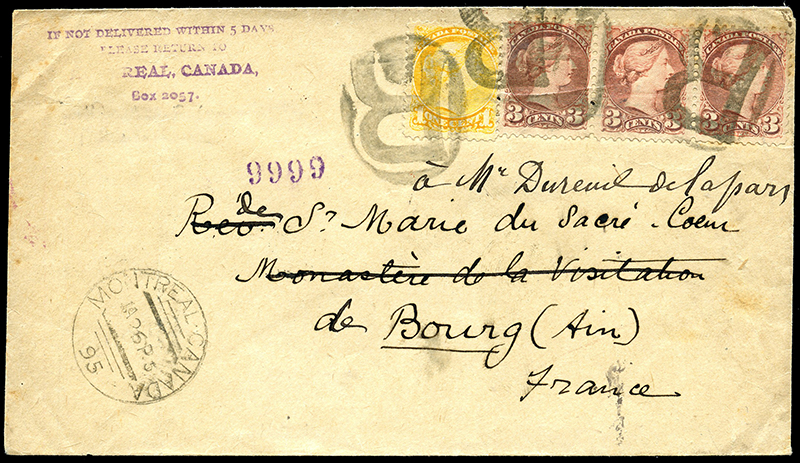 IF NOT DELIVERED WITHIN 5 DAYS
PLEASE RETURN TO
REAL, CANADA,
Box 2057.
CANADA POSTAGE CANADA POSTAGE CANADA POSTAGE CANADA POSTAGE
1 ONE CENT 1 3 CENTS 3 3 CENTS 3 3 CENTS 3
9999
à Mr Dureuil de la part
de
Rév. Sr Marie du Sacré-Coeur
Monastère de la Visitation
de Bourg (Ain)
France
MONTREAL·CANADA
95